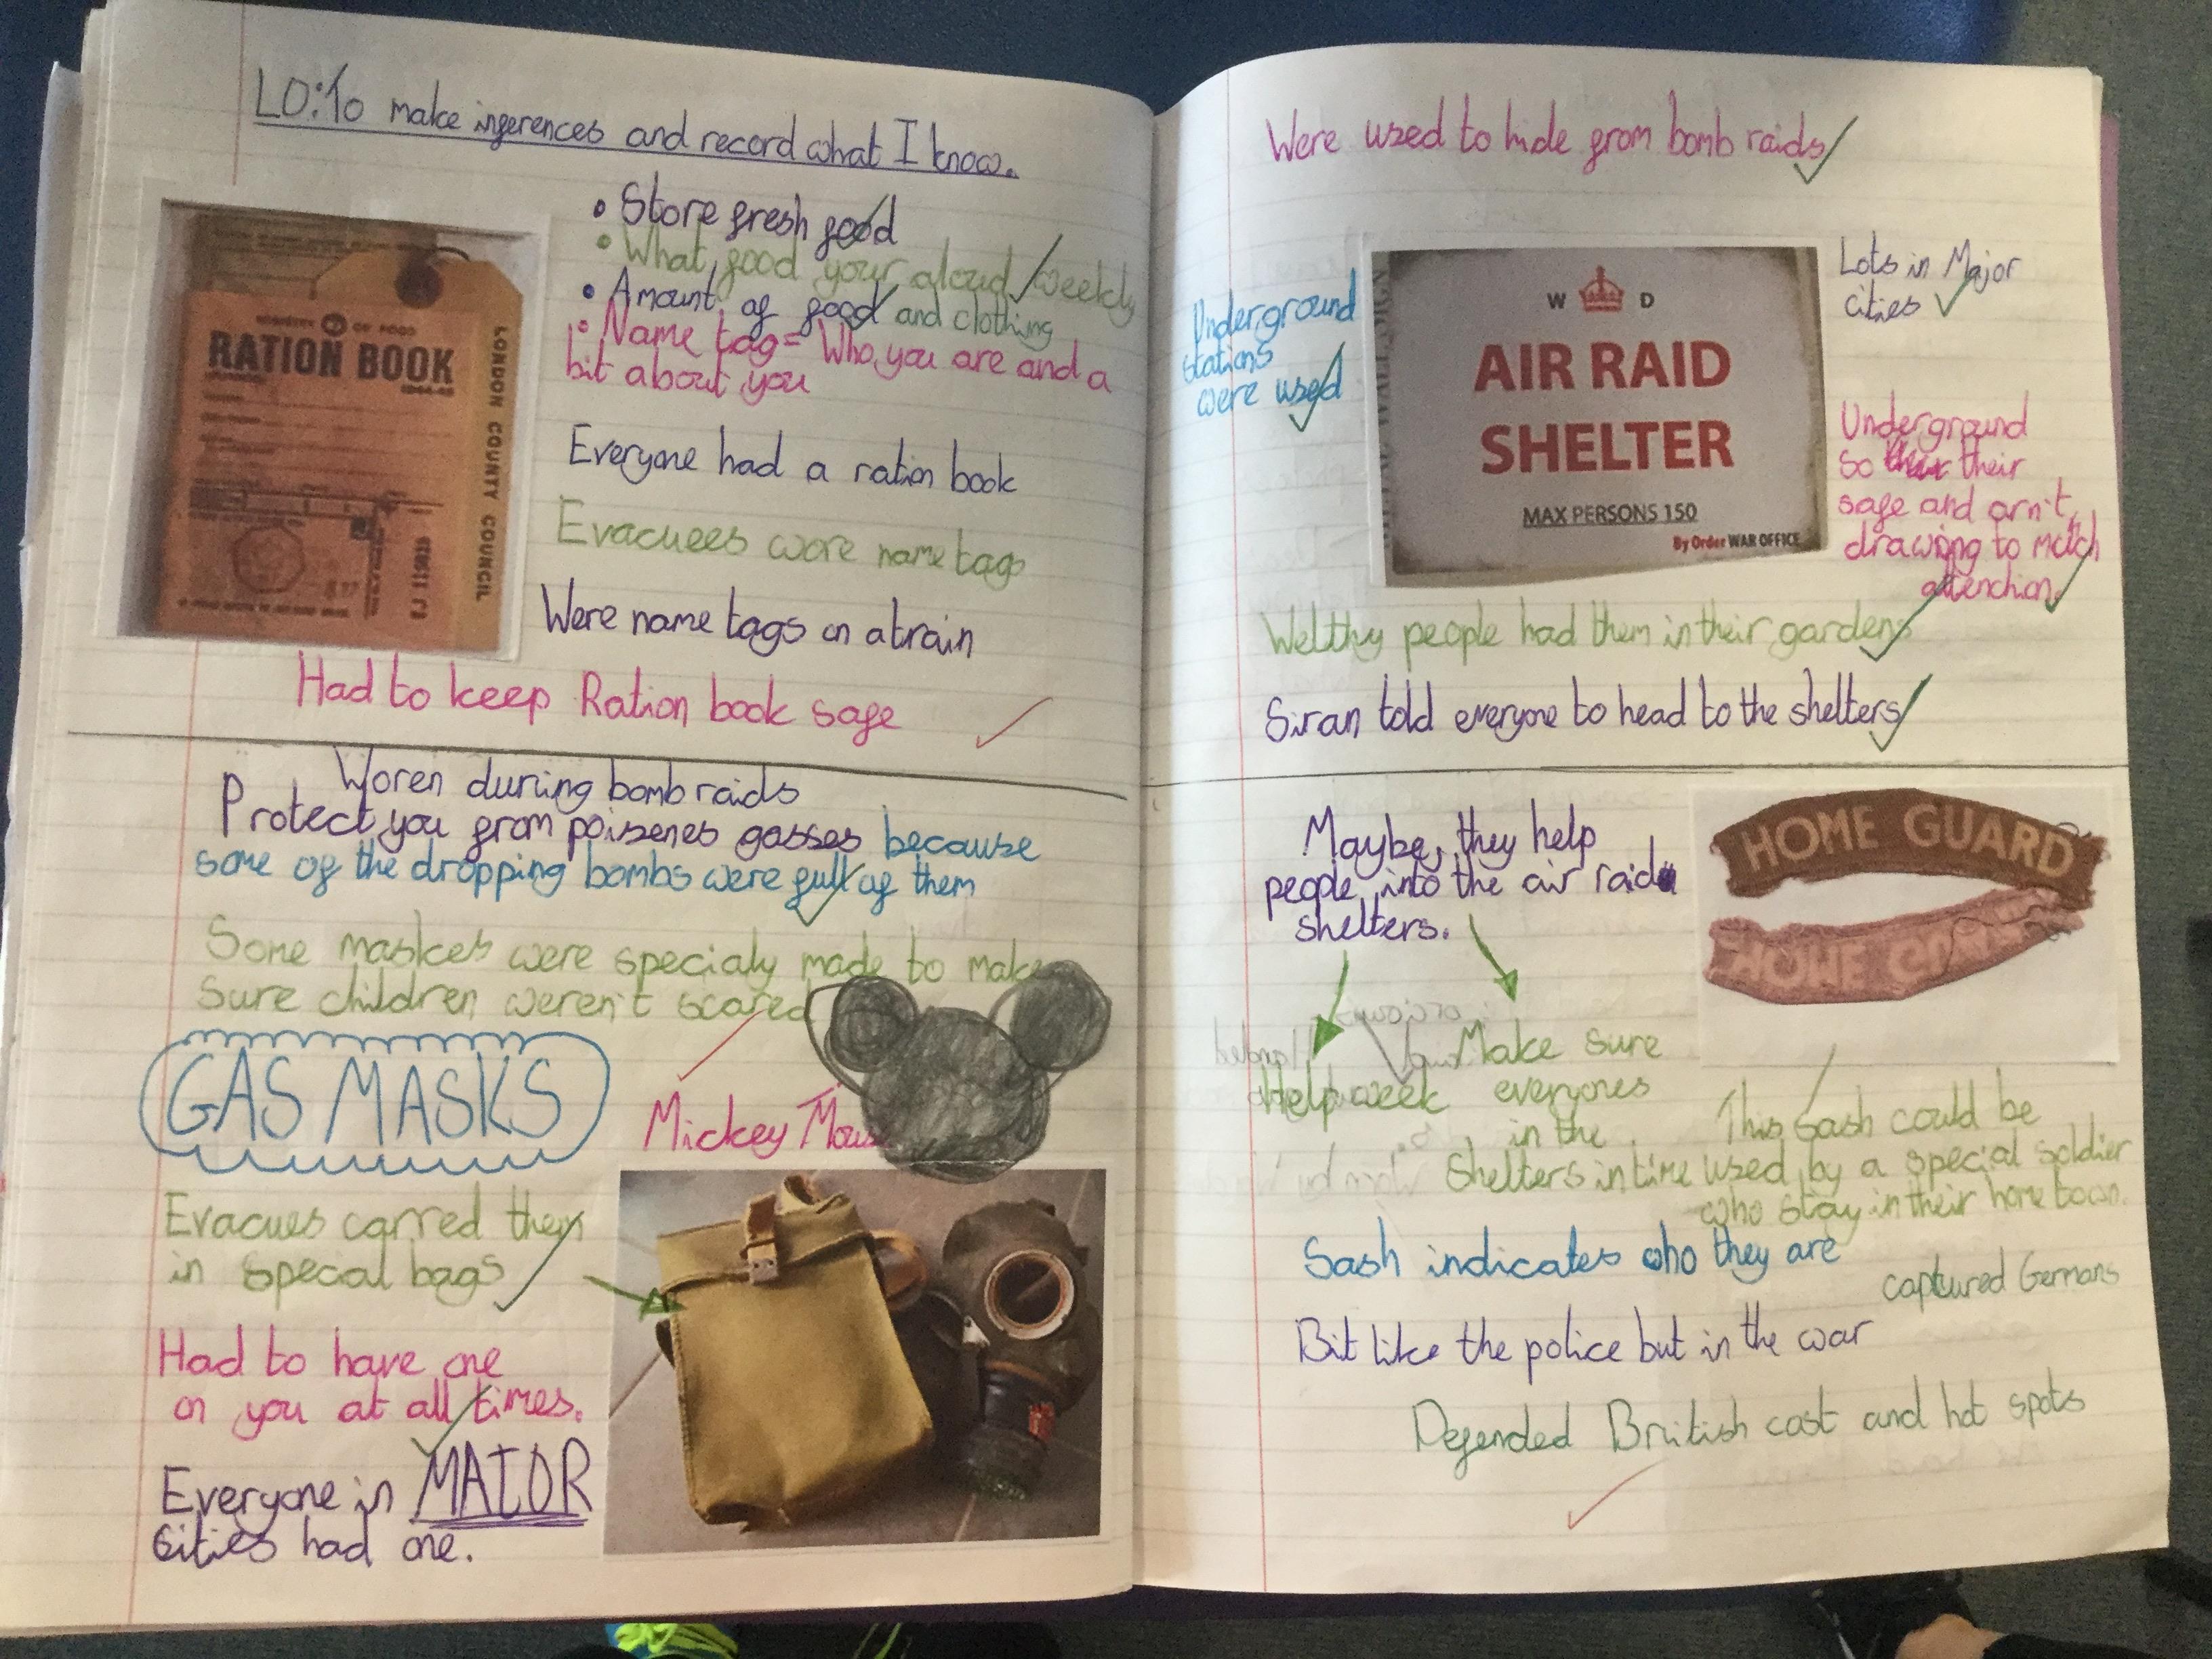 LO: To make inferences and record what I know.
• Store fresh food
• What food your aloud weekly
• Amount of food and clothing
• Name tag = Who you are and a
bit about you
MINISTRY OF FOOD
RATION BOOK
LONDON COUNTY COUNCIL
Everyone had a ration book
Evacuees wore name tags
Were name tags on a train
Had to keep Ration book safe
Woren during bomb raids
Protect you from poisenes gasses because
some of the dropping bombs were full of them
Some maskes were specialy made to make
sure children weren't scared
GAS MASKS
Mickey Mous
Evacues carred them
in special bags
Had to have one
on you at all times.
Everyone in MAJOR
cities had one.
Were used to hide from bomb raids
Underground
stations
were used
W D
AIR RAID
SHELTER
MAX PERSONS 150
By Order WAR OFFICE
Lots in Major
cities
Underground
so their
safe and arn't
drawing to mutch
attenchion.
Welthy people had them in their gardens
Siran told everyone to head to the shelters
Maybe, they help
people into the air raid
shelters.
HOME GUARD
HOME GUARD
Help week
Make sure
everyones
in the
shelters in time
This sash could be
used by a special soldier
who stay in their home town.
Sash indicates who they are
captured Germans
Bit like the police but in the war
Defended British cost and hot spots